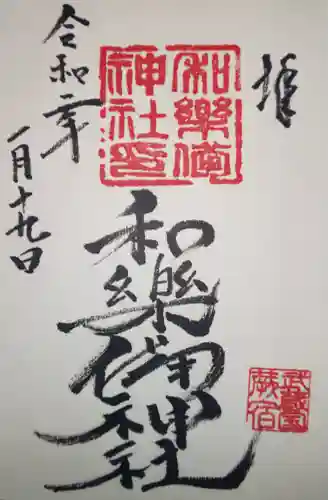 拝
和樂備
神社印
和樂備神社
武蔵國
蕨宿
令和二年
一月十九日